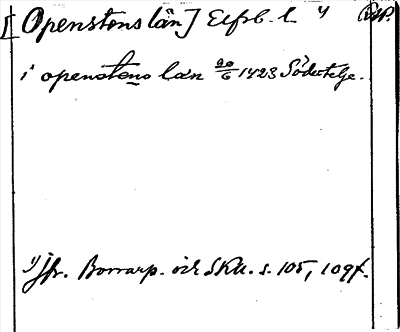 [Openstens län] Elfsb. l. 1)
i openstens län 20/6 1423 Södertelje.
1) Jfr. Bomarp. och SRU. s. 105, 109f.